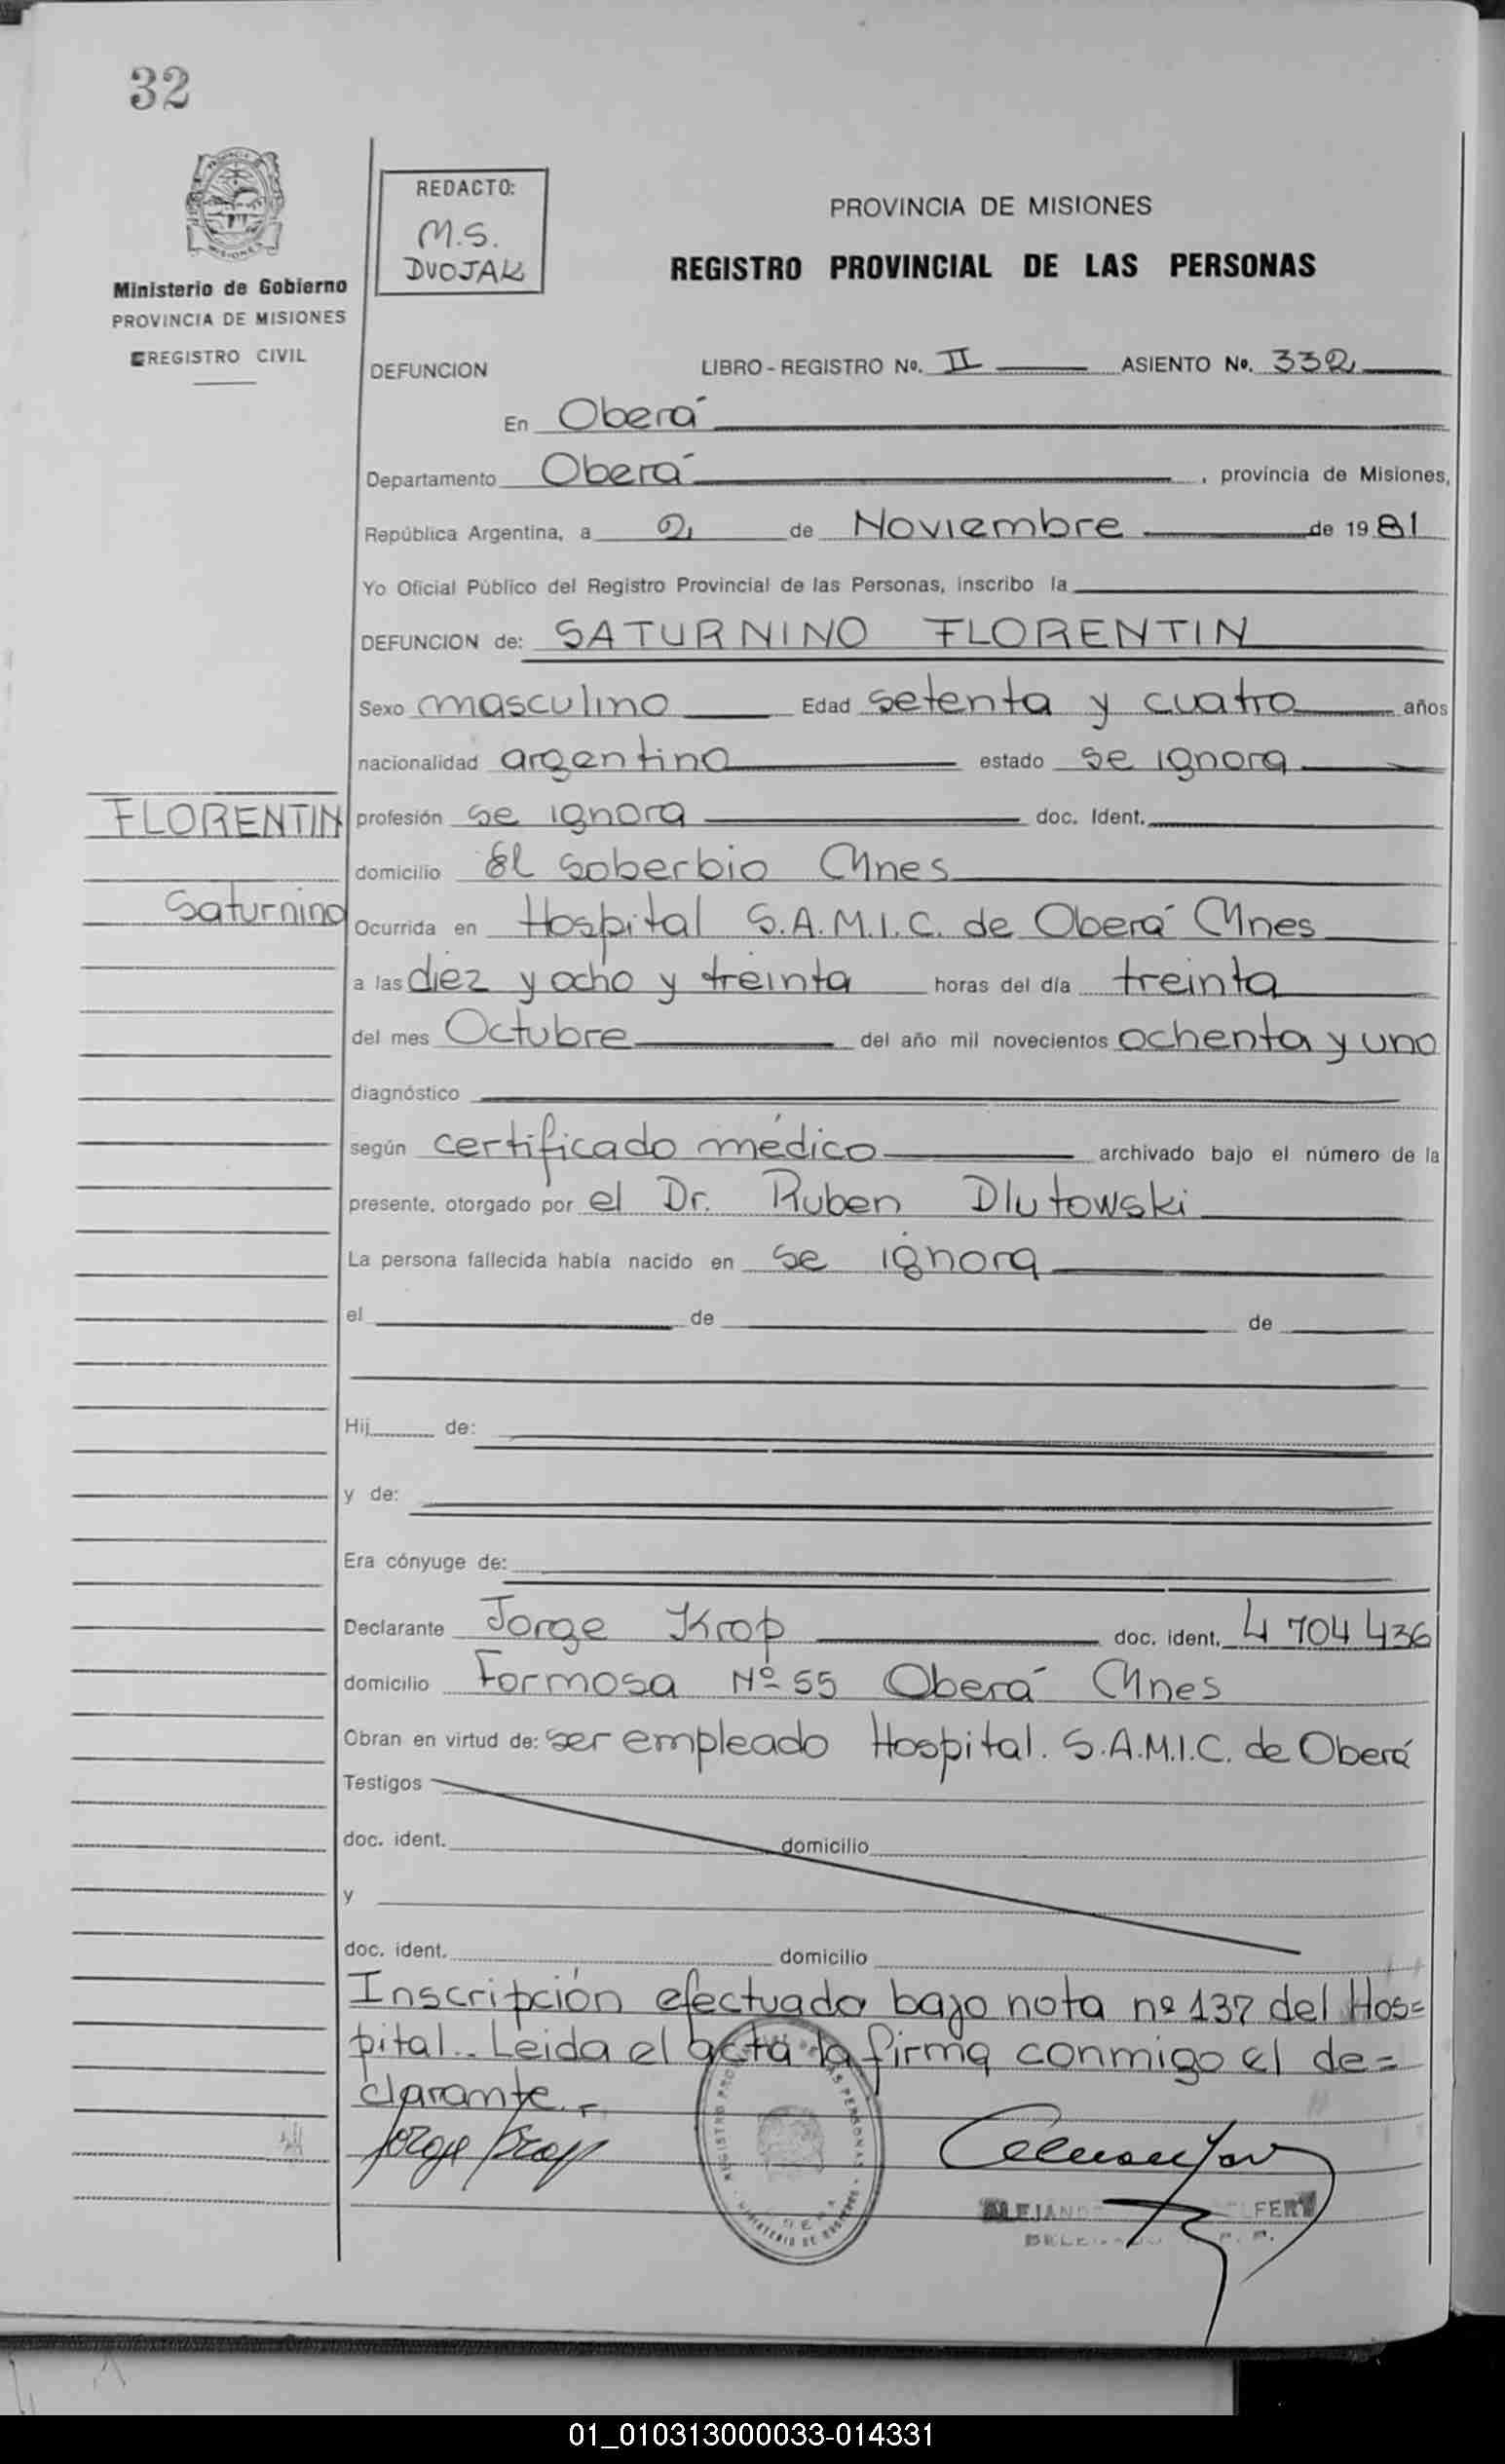 32
REDACTO:
M.S.
DVOJAK
PROVINCIA DE MISIONES
REGISTRO PROVINCIAL DE LAS PERSONAS
Ministerio de Gobierno
PROVINCIA DE MISIONES
REGISTRO CIVIL
DEFUNCION LIBRO - REGISTRO No. II ASIENTO No. 332
En Oberá
Departamento Oberá, provincia de Misiones,
República Argentina, a 2 de Noviembre de 1981
Yo Oficial Público del Registro Provincial de las Personas, inscribo la
DEFUNCION de: SATURNINO FLORENTIN
Sexo masculino Edad setenta y cuatro años
nacionalidad argentino estado se ignora
FLORENTIN
profesión se ignora doc. Ident.
domicilio El soberbio Mnes
Saturnino
Ocurrida en Hospital S.A.M.I.C. de Oberá Mnes
a las diez y ocho y treinta horas del día treinta
del mes Octubre del año mil novecientos ochenta y uno
diagnóstico
según certificado médico archivado bajo el número de la
presente, otorgado por el Dr. Ruben Dlutowski
La persona fallecida había nacido en se ignora
el de de
Hij de:
y de:
Era cónyuge de:
Declarante Jorge Krop doc. ident. 4 704 436
domicilio Formosa Nº 55 Oberá Mnes
Obran en virtud de: ser empleado Hospital. S.A.M.I.C. de Oberá
Testigos
doc. ident. domicilio
y
doc. ident. domicilio
Inscripción efectuado bajo nota nº 137 del Hos=
pital.. Leida el acta la firma conmigo el de=
clarante.-
Jorge Krop
01_010313000033-014331